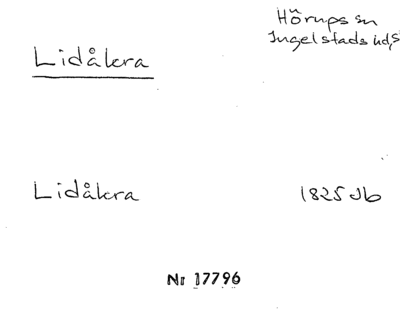 Hörups sn
Ingelstads hd,S
Lidåkra
Lidåkra 1825 Jb
Nr 17796